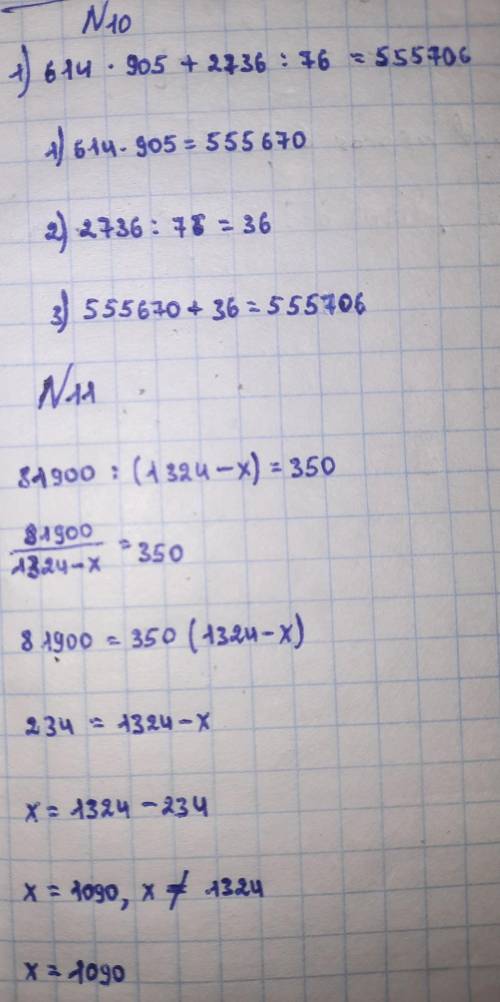 N10
1) 614 · 905 + 2736 : 76 = 555706
1) 614 · 905 = 555670
2) 2736 : 76 = 36
3) 555670 + 36 = 555706
N11
81900 : (1324 - x) = 350
81900/1324 - x = 350
81900 = 350 (1324 - x)
234 = 1324 - x
x = 1324 - 234
x = 1090, x ≠ 1324
x = 1090